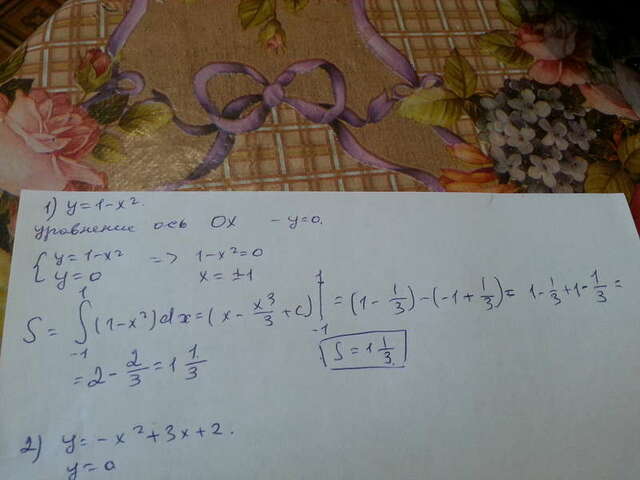 1) y=1-x².
уровнение ось Ox - y=0.
{ y=1-x² => 1-x²=0
y=0 x=±1
S = ∫₋₁¹ (1-x²)dx = (x - x³/3 + c)|₋₁¹ = (1 - 1/3) - (-1 + 1/3) = 1 - 1/3 + 1 - 1/3 =
= 2 - 2/3 = 1 1/3
S = 1 1/3.
2) y = -x² + 3x + 2.
y = 0